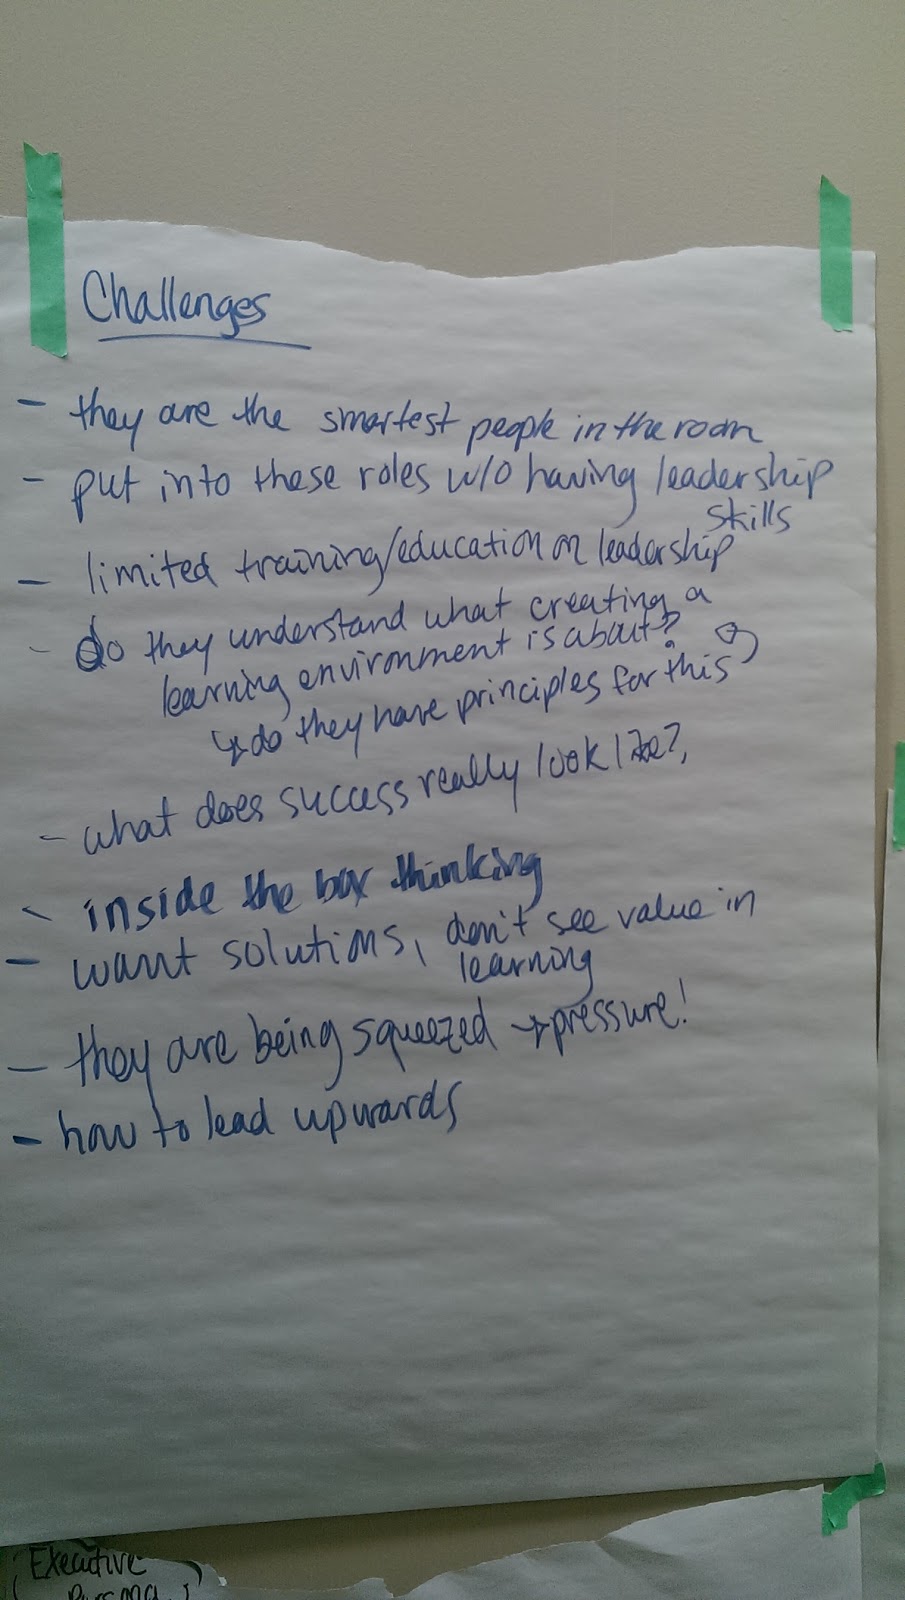 Challenges
- they are the smartest people in the room
- put into these roles w/o having leadership
skills
- limited training/education on leadership
- do they understand what creating a
learning environment is about?
↳ do they have principles for this?
- what does success really look like?,
- inside the box thinking
- want solutions, don't see value in
learning
- they are being squeezed → pressure!
- how to lead upwards
Executive
Persona